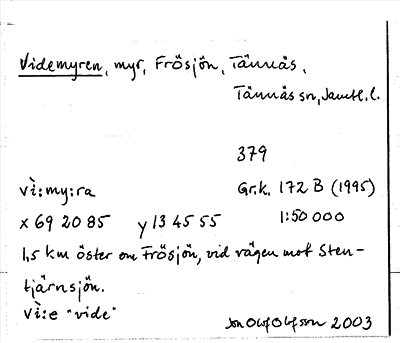 Videmyren, myr, Frösjön, Tännäs,
Tännäs sn, Jämtl. l.
379
vì:my:ra
Gr.k. 172 B (1995)
x 69 20 85 y 13 45 55 1:50 000
1,5 km öster om Frösjön, vid vägen mot Sten-
tjärnsjön.
vì:e "vide"
Jon Olof Olsson 2003